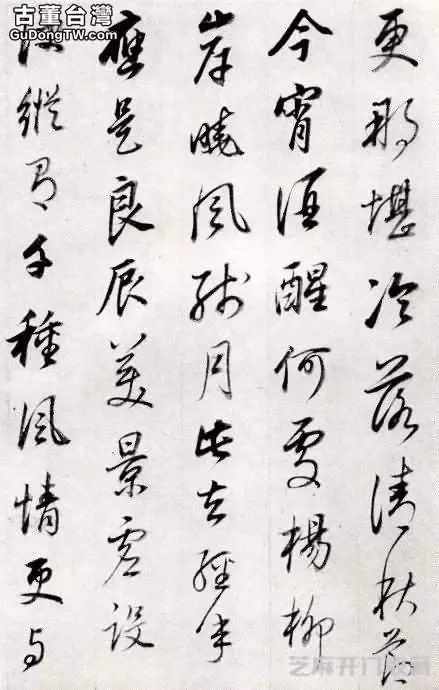 古董台灣
GuDongTW.com
更那堪冷落清秋節
今宵酒醒何處楊柳
岸曉風殘月此去經年
應是良辰美景虛設
便縱有千種風情更与
芝麻开门收藏